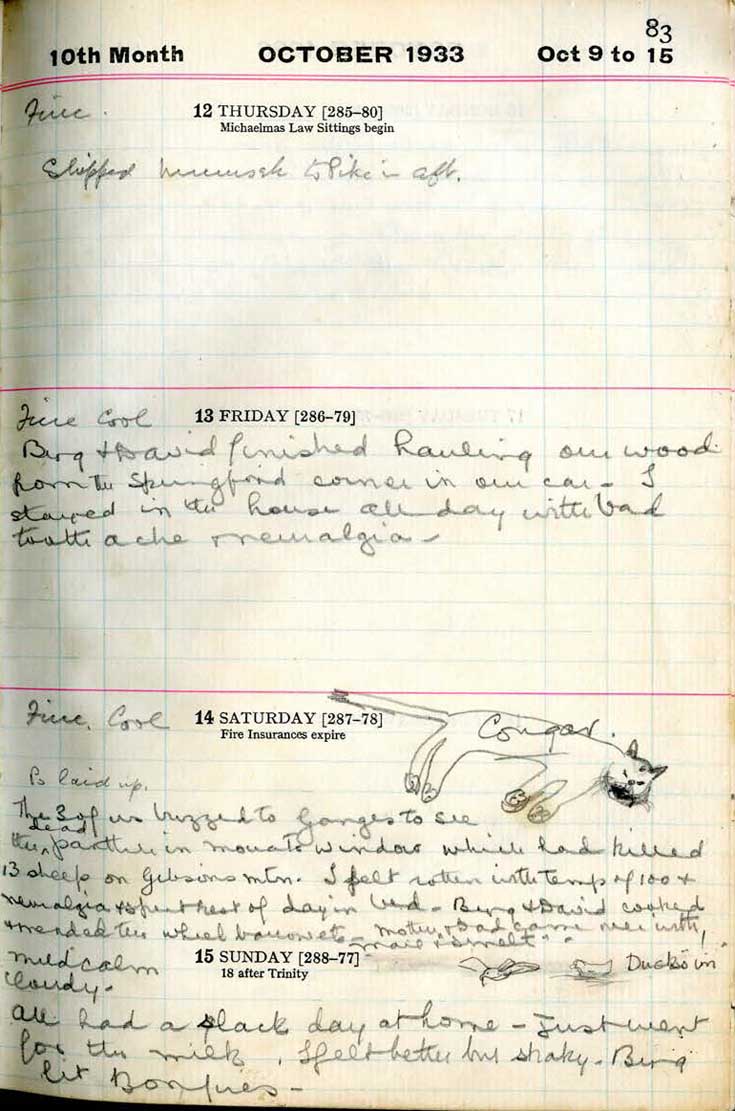 83
10th Month OCTOBER 1933 Oct 9 to 15
Fine. 12 THURSDAY [285–80]
Michaelmas Law Sittings begin
Shipped to Pike in aft.
Fine Cool 13 FRIDAY [286–79]
Berg & David finished hauling our wood
from the Springford corner in our car – I
stayed in the house all day with bad
tooth ache & neuralgia –
Fine, Cool 14 SATURDAY [287–78] Cougar.
Fire Insurances expire
B laid up.
The 3 of us buzzed to Ganges to see
the dead panther in Mouats window which had killed
13 sheep on Gibsons mtn. I felt rotten with temp of 100 &
neuralgia & spent rest of day in bed – Berg & David cooked
& mended the wheel barrow etc – Mother & Dad came over with
mail & smelt
mild calm 15 SUNDAY [288–77] Ducks in
cloudy. 18 after Trinity
All had a slack day at home – Just went
for the milk, I felt better but shaky. Berg
lit Bonfires –